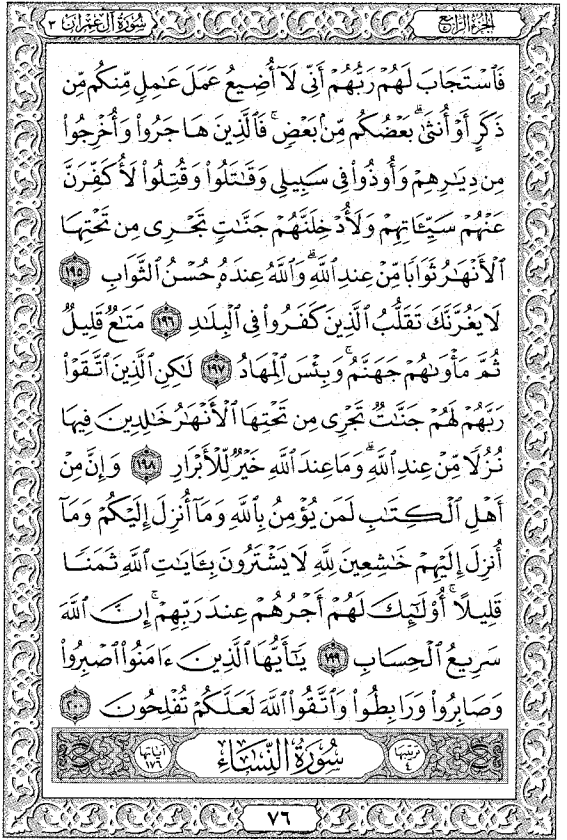 سُورَةُ آلِ عِمْرَانَ ٣
الجُزْءُ الرَّابِعُ
فَٱسْتَجَابَ لَهُمْ رَبُّهُمْ أَنِّى لَآ أُضِيعُ عَمَلَ عَٰمِلٍ مِّنكُم مِّن
ذَكَرٍ أَوْ أُنثَىٰۖ بَعْضُكُم مِّنۢ بَعْضٍۖ فَٱلَّذِينَ هَاجَرُوا۟ وَأُخْرِجُوا۟
مِن دِيَٰرِهِمْ وَأُوذُوا۟ فِى سَبِيلِى وَقَٰتَلُوا۟ وَقُتِلُوا۟ لَأُكَفِّرَنَّ
عَنْهُمْ سَيِّـَٔاتِهِمْ وَلَأُدْخِلَنَّهُمْ جَنَّٰتٍ تَجْرِى مِن تَحْتِهَا
ٱلْأَنْهَٰرُ ثَوَابًا مِّنْ عِندِ ٱللَّهِۗ وَٱللَّهُ عِندَهُۥ حُسْنُ ٱلثَّوَابِ ١٩٥
لَا يَغُرَّنَّكَ تَقَلُّبُ ٱلَّذِينَ كَفَرُوا۟ فِى ٱلْبِلَٰدِ ١٩٦ مَتَٰعٌ قَلِيلٌ
ثُمَّ مَأْوَىٰهُمْ جَهَنَّمُۚ وَبِئْسَ ٱلْمِهَادُ ١٩٧ لَٰكِنِ ٱلَّذِينَ ٱتَّقَوْا۟
رَبَّهُمْ لَهُمْ جَنَّٰتٌ تَجْرِى مِن تَحْتِهَا ٱلْأَنْهَٰرُ خَٰلِدِينَ فِيهَا
نُزُلًا مِّنْ عِندِ ٱللَّهِۗ وَمَا عِندَ ٱللَّهِ خَيْرٌ لِّلْأَبْرَارِ ١٩٨ وَإِنَّ مِنْ
أَهْلِ ٱلْكِتَٰبِ لَمَن يُؤْمِنُ بِٱللَّهِ وَمَآ أُنزِلَ إِلَيْكُمْ وَمَآ
أُنزِلَ إِلَيْهِمْ خَٰشِعِينَ لِلَّهِ لَا يَشْتَرُونَ بِـَٔايَٰتِ ٱللَّهِ ثَمَنًا
قَلِيلًاۗ أُو۟لَٰٓئِكَ لَهُمْ أَجْرُهُمْ عِندَ رَبِّهِمْۗ إِنَّ ٱللَّهَ
سَرِيعُ ٱلْحِسَابِ ١٩٩ يَٰٓأَيُّهَا ٱلَّذِينَ ءَامَنُوا۟ ٱصْبِرُوا۟
وَصَابِرُوا۟ وَرَابِطُوا۟ وَٱتَّقُوا۟ ٱللَّهَ لَعَلَّكُمْ تُفْلِحُونَ ٢٠٠
ترتيبها ٤
سُورَةُ النِّسَاءِ
آياتها ١٧٦
٧٦